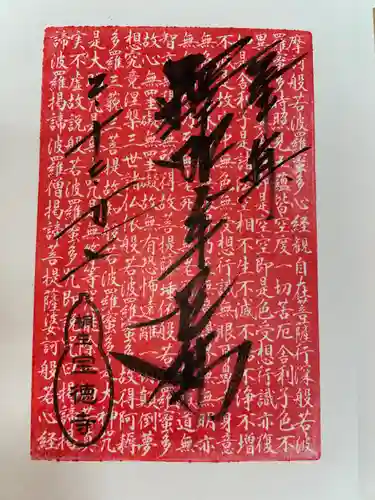 摩訶般若波羅蜜多心経観自在菩薩行深般若波
羅蜜多時照見五蘊皆空度一切苦厄舎利子色不
異空空不異色色即是空空即是色受想行識亦復
是舎利子是諸法空相不生不滅不垢不浄不増
不減是故空中無色無受想行識無眼耳鼻舌身意
無色無眼界無意識界無無明亦
無無明尽乃至無老死亦無老死尽無苦集滅道無
智亦無得以無所得故菩提薩埵依般若波羅蜜多
故心無罣礙無罣礙故無有恐怖遠離一切顛倒夢
想究竟涅槃三世諸仏依般若波羅蜜多故得阿耨
多羅三藐三菩提故知般若波羅蜜多是大神咒
是大明咒是無上咒是無等等咒能除一切苦真
実不虚故説般若波羅蜜多咒即説咒曰羯諦羯
諦波羅羯諦波羅僧羯諦菩提薩婆訶般若心経
奉拝
釈迦牟尼仏
宝徳寺